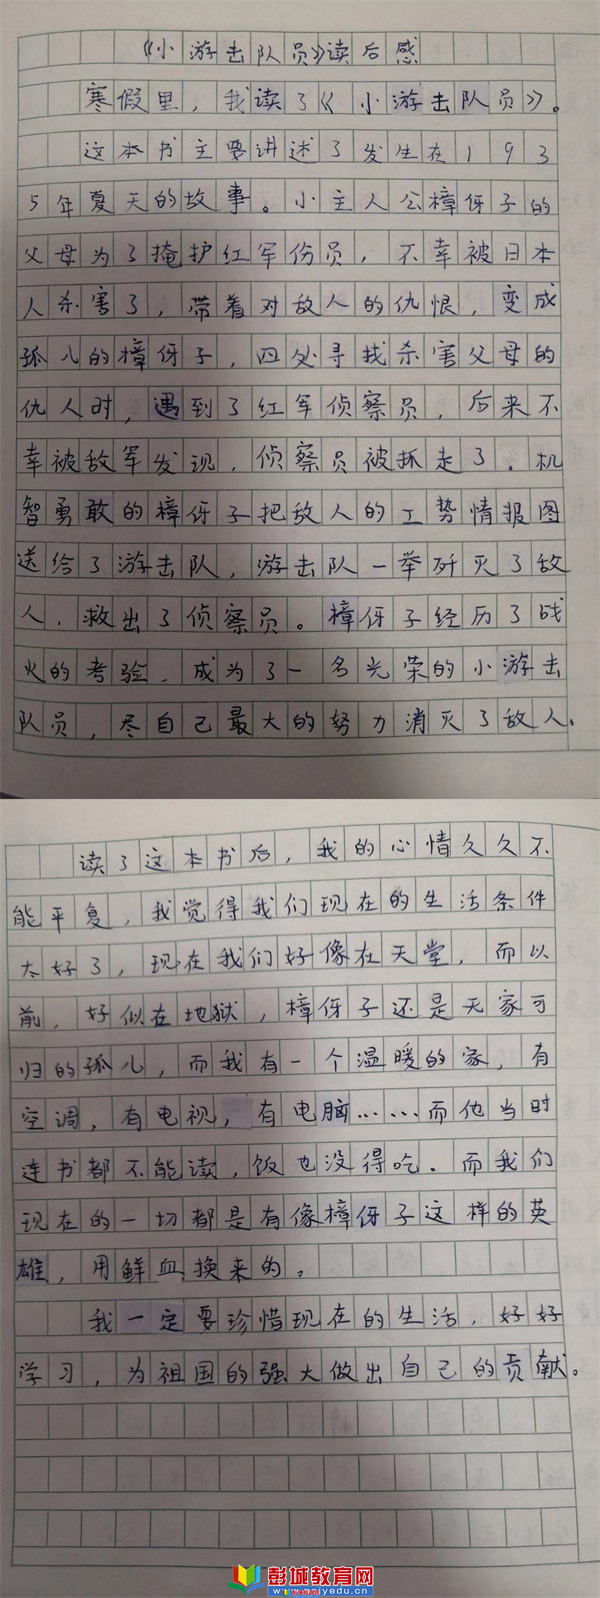 《小游击队员》读后感
寒假里，我读了《小游击队员》。
这本书主要讲述了发生在193
5年夏天的故事。小主人公樟伢子的
父母为了掩护红军伤员，不幸被日本
人杀害了，带着对敌人的仇恨，变成
孤儿的樟伢子，四处寻找杀害父母的
仇人时，遇到了红军侦察员，后来不
幸被敌军发现，侦察员被抓走了。机
智勇敢的樟伢子把敌人的工势情报图
送给了游击队，游击队一举歼灭了敌
人，救出了侦察员。樟伢子经历了战
火的考验，成为了一名光荣的小游击
队员，尽自己最大的努力消灭了敌人。
读了这本书后，我的心情久久不
能平复，我觉得我们现在的生活条件
太好了，现在我们好像在天堂，而以
前，好似在地狱，樟伢子还是无家可
归的孤儿，而我有一个温暖的家，有
空调，有电视，有电脑……而他当时
连书都不能读，饭也没得吃。而我们
现在的一切都是有像樟伢子这样的英
雄，用鲜血换来的。
我一定要珍惜现在的生活，好好
学习，为祖国的强大做出自己的贡献。
彭城教育网